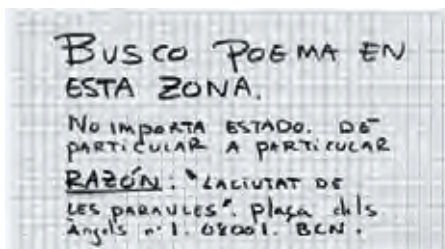 BUSCO POEMA EN
ESTA ZONA.
NO IMPORTA ESTADO. DE
PARTICULAR A PARTICULAR
RAZÓN: "LACIUTAT DE
LES PARAULES". Plaça dels
Àngels nº 1. 08001. BCN.